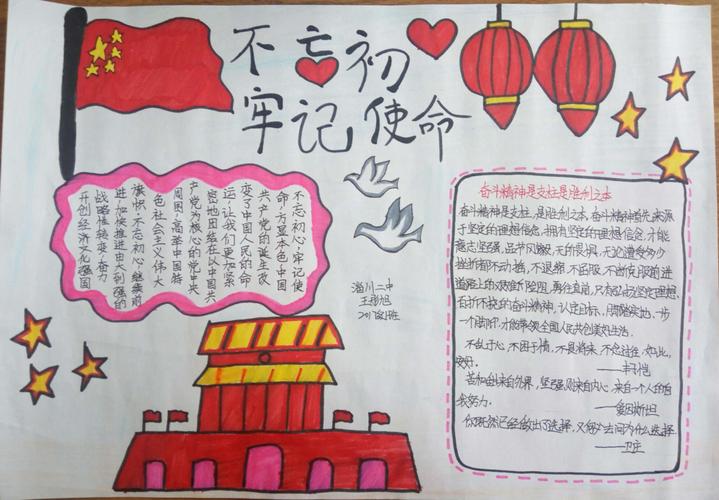 不忘初
牢记使命
不忘初心,牢记使
命,方显本色中国
共产党的诞生改
变了中国人民的命
运,让我们更加紧
密地团结在以中国共
产党为核心的党中央
周围,高举中国特
色社会主义伟大
旗帜,不忘初心,继续前
进,加快推进由大到强的
战略性转变,奋力
开创经济文化强国
淄川二中
王 旭
2017级 班
奋斗精神是支柱是胜利之本
奋斗精神是支柱,是胜利之本,奋斗精神首先来源
于坚定的理想信念,拥有坚定的理想信念,才能
意志坚强,品节风骏,无所畏惧,无论遭受多少
挫折都不动摇,不退缩,不屈服,不断克服前进
道路上的艰难险阻,勇往直前,只有踏
百折不挠的奋斗精神,认定目标,脚踏实地,一步
一个脚印,才能带领全国人民共创美好生活.
不乱于心,不困于情,不畏将来,不念过往,如此,
安好.
——丰子恺
苦和甜来自外界,坚强则来自内心,来自一个人的自
我努力.
——爱因斯坦
你既然已经做出了选择,又何必去问为什么选择.
——卫庄